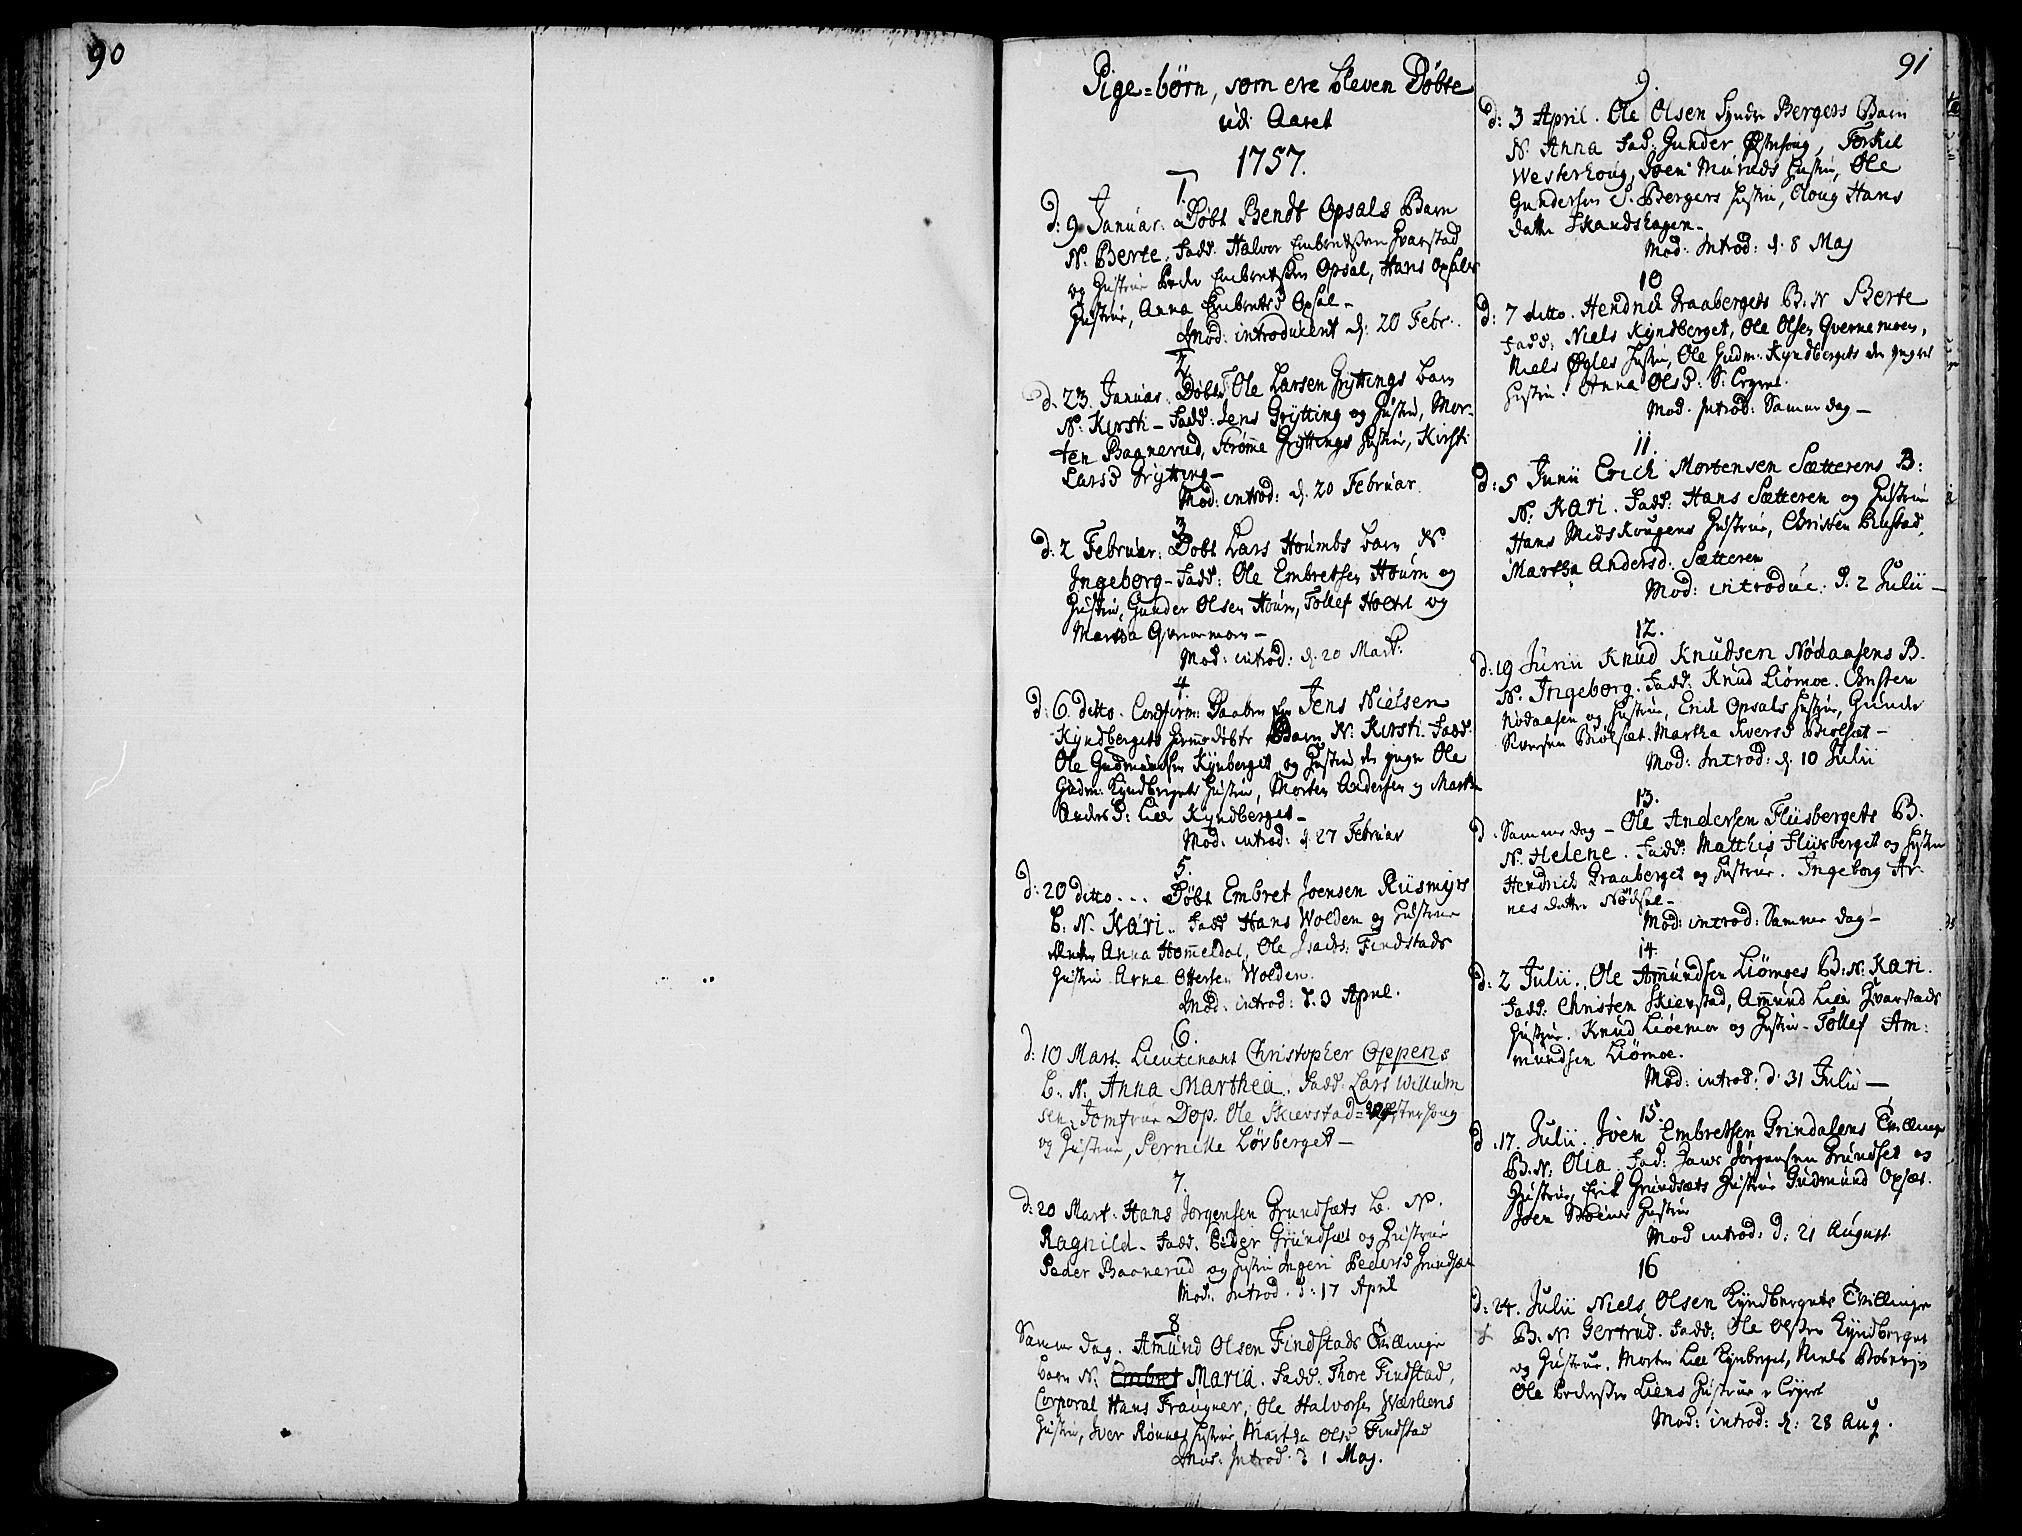 90
Pige=børn, som ere bleven Døbte
udi Aaret
1757.
1.
D: 9 Januar. Døbt Bendt Opsals Barn
N. Berte. Fadd: Halvor Embretssen Qvarstad
og Hustrue Peder Embretssen Opsal, Hans Opsals
Hustrue, Anna Embretsd Opsal –
Mod: introduceret d: 20 Febr:
2.
d. 23. Januar. Døbt Ole Larsen Gryttings barn
N: Kirsti – Fadd: Jens Grytting og Hustru, Mor-
ten Bagnerud, Strømme Gryttings Hustrue, Kirsti
Larsd Grytting –
Mod: introd: d. 20 Februar.
3
D: 2 Februar: Døbt Lars Houmbs barn N
Ingeborg – Fadd: Ole Embretsen Houm og
Hustru, Gunder Olsen Houm, Tollef Holtet og
Martha Qvernmoen –
Mod: introd: d. 20 Mart:
4.
D: 6. ditto. Confirm: Daaben for Jens Nielsen
Kyndbergets hiemedøbte Barn N: Kirsti. Fadd:
Ole Gudmundsen Kynberget og Hustru den yngre Ole
Gudm: Kyndbergets Hustru, Morten Andersen og Martha
Andersd: Lille Kyndberget –
Mod: introd: d 27 Februar
5.
d: 20 ditto ... Døbt Embret Joensen Riismyrs
B: N. Kari. Fadd Hans Wolden og Hustrue
Anna Hommeldal, Ole Isachs: Findstads
Hustru Arne Ottersen Wolden.
Mod: introd: d. 3 April.
6.
d: 10 Mart. Lieutenant Christopher Oppens
B: N: Anna Marthea. Fadd: Lars Willum
sen. Jomfrue Dop. Ole Skierstad Østerhoug
og Hustrue, Pernille Løvberget –
7.
d: 20 Mart. Hans Jørgensen Grundsæts B. N.
Ragnild. Fadd. Peder Grundsæt og Hustrue
Peder Bagnerud og Hustru Ingeri Pedersd Grundsæt
Mod. Introd. d: 17 April
8
Samme Dag. Amund Olsen Findstads Tvillinge
barn N: Embret Maria. Fadd. Thore Findstad,
Corporal Hans Fraugner, Ole Halvorsen Wærliens
Hustru, Iver Rønnes Hustrue, Martha Olsd Findstad
Mod: Introd. d 1 Maj.
91
9.
D: 3 April. Ole Olsen Syndre Bergets Barn
N. Anna Fad: Gunder Østhoug, Torkel
Westerhoug, Joen Muruds Hustru, Ole
Gundersen S. Bergets Hustru, Oloug Hans
datter Skandshagen –
Mod: Introd: d. 8 Maj
10
D: 7 ditto. Hendrich Graabergets B: N Berte
Fadd: Niels Kyndberget, Ole Olsen Qvernemoen,
Niels Øgles Hustru, Ole Gudm: Kyndbergets den yngres
Hustru. Anna Olsd: S:
Mod. Introd: Samme dag –
11.
D: 5 Junii Erich Mortensen Sætterens B:
N. Kari. Fadd: Hans Sætteren og Hustrue
Hans Midskougens Hustrue, Christen Rustad,
Martha Andersd: Sætteren
Mod: introduc: d. 2 Julii –
12.
d: 19 Junii Knud Knudsen Nødaasens B.
N. Ingeborg. Fadd: Knud Liømoe. Christen
Nødaasen og Hustru, Erick Opsals Hustrue, Gunder
Iversen Biølsæt. Martha Iversd Biølsæt –
Mod: Introd: d: 10 Julii
13.
d. Samme dag – Ole Andersen Fliisbergets B.
N. Helene. Fadd: Matthis Fliisberget og Hustru
Hendrich Graaberget og Hustrue. Ingeborg Ar-
nes datter Nødsel –
Mod: introd: Samme dag –
14.
d: 2 Julii. Ole Ammundsen Liømoes B: N: Kari.
Fadd: Christen Skierstad, Amund Lille Qvarstads
Hustrue. Knud Liøemoe og Hustru – Tollef Am-
mundsen Liømoe.
Mod: introd: d. 31 Julii –
15.
d. 17. Julii. Joen Embretsen Grindalens Tvillinge
B. N: Olia. Fad: Hans Jørgensen Grundset og
Hustrue, Erik Grundsæts Hustrue Gudmund Opsæt.
Joen Hustrue
Mod introd: d: 21 August.
16
d: 24. Julii Niels Olsen Kyndbergets Tvillinge
B. N Gertrud. Fadd: Ole Olsen Kyndberget
og Hustrue. Morten Lille Kynberget, Niels
Ole Pedersen Liens Hustrue
Mod: introd: d: 28 Aug.